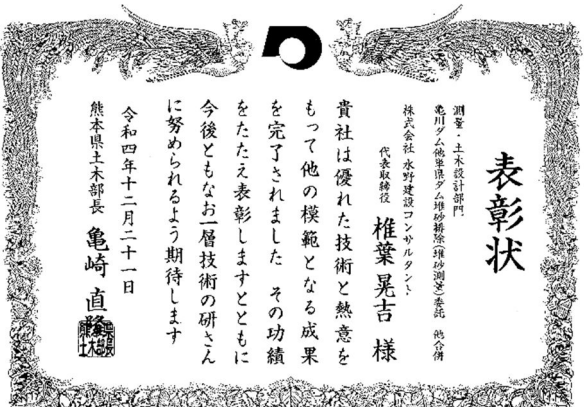 表彰状
測量・土木設計部門
亀川ダム他単県ダム堆砂排除(堆砂測量)委託 他合併
株式会社 水野建設コンサルタント
代表取締役 椎葉 晃吉 様
貴社は優れた技術と熱意を
もって他の模範となる成果
を完了されました その功績
をたたえ表彰しますとともに
今後ともなお一層技術の研さん
に努められるよう期待します
令和四年十二月二十一日
熊本県土木部長 亀崎 直隆